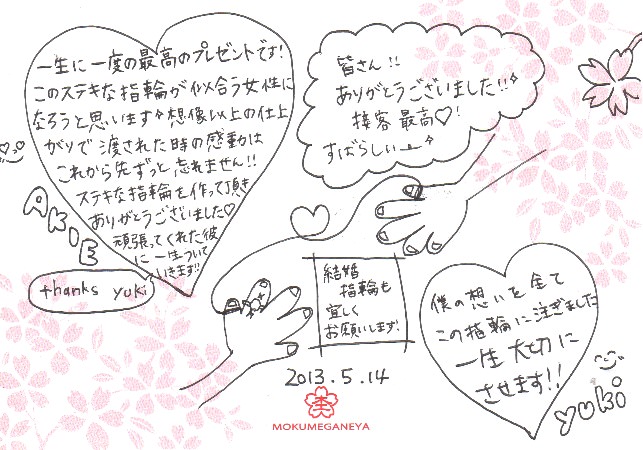 一生に一度の最高のプレゼントです!
このステキな指輪が似合う女性に
なろうと思います 想像以上の仕上
がりで渡された時の感動は
これから先ずっと忘れません!!
ステキな指輪を作って頂き
ありがとうございました♡
頑張ってくれた彼
に一生ついて
いきます!!
AKIE
thanks yuki
皆さん!!
ありがとうございました!!
接客最高♡!
すばらしいー
結婚
指輪も
宜しく
お願いします!
2013.5.14
MOKUMEGANEYA
僕の想いを全て
この指輪に注ぎました
一生大切に
させます!!
yuki